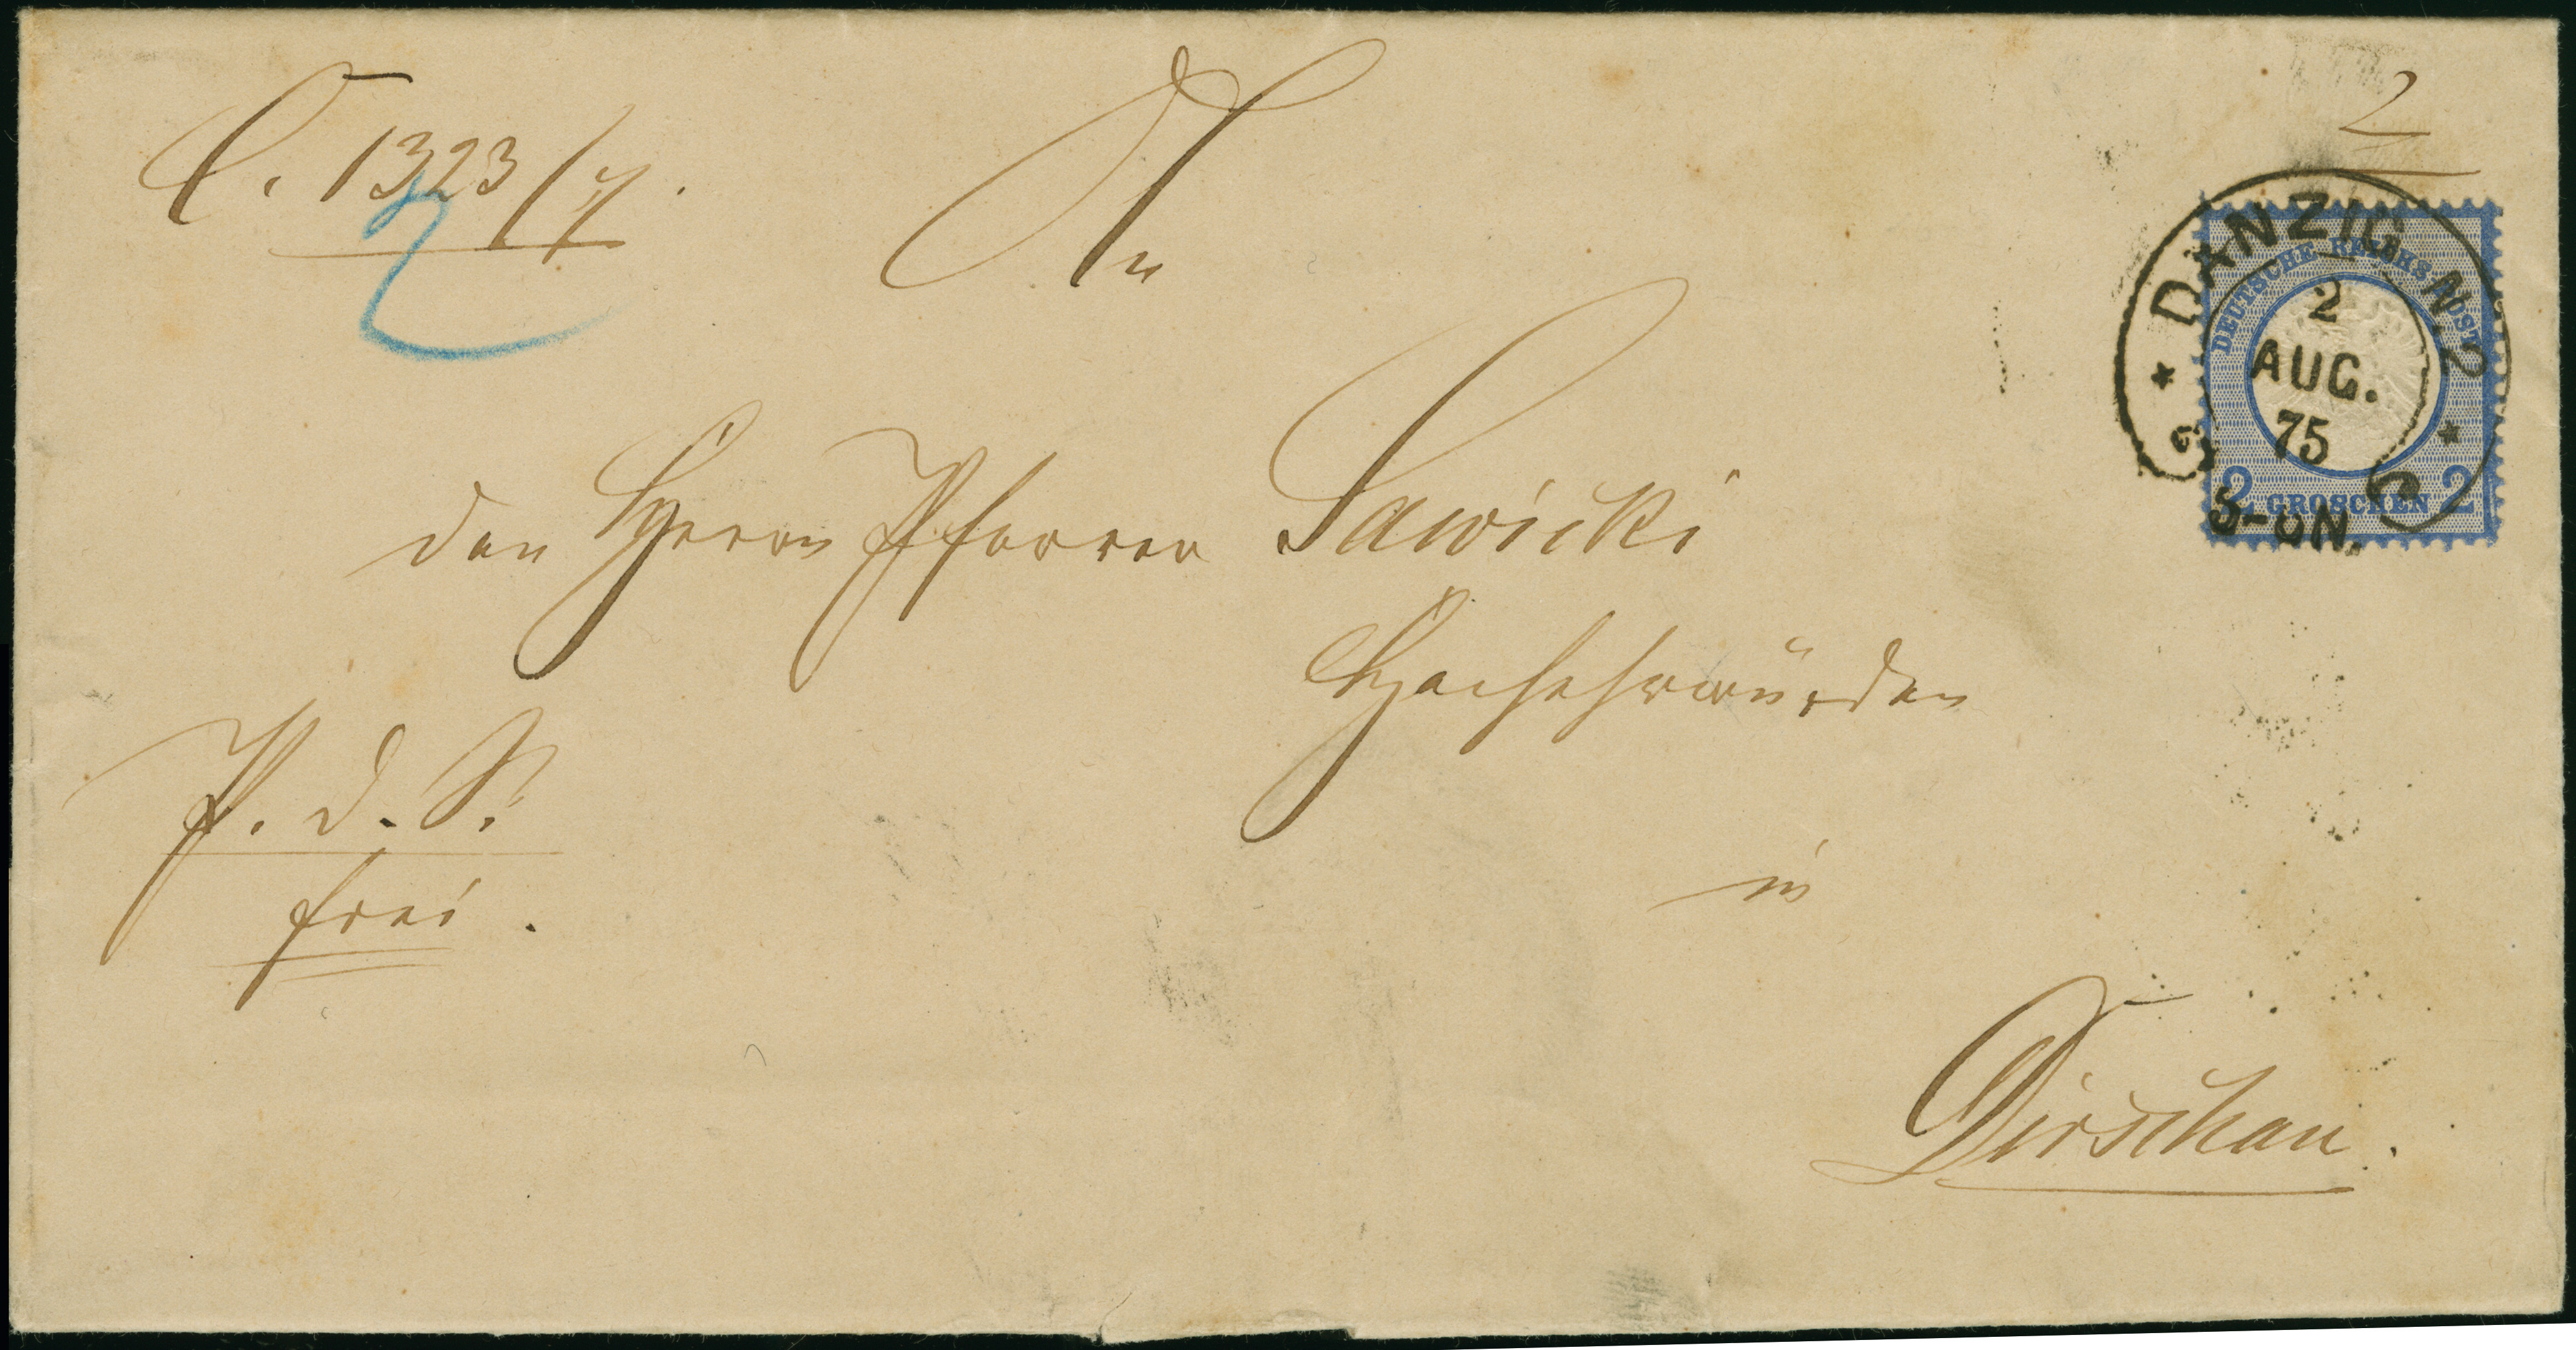 C. 1323/7.
2
2
An
den Herrn Pfarrer Sawicki
Hochehrwürden
in
Dirschau.
P. d. S.
frei.
DANZIG N. 2
2
AUG.
75
5-6N.
C
DEUTSCHE REICHS-POST
2 GROSCHEN 2